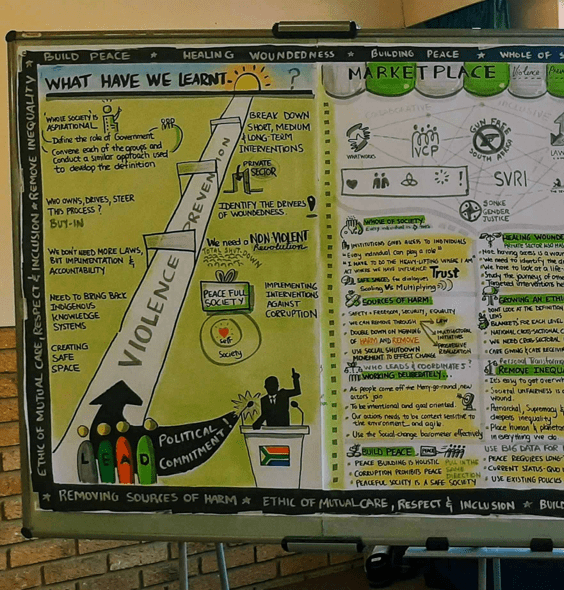 BUILD PEACE ★ HEALING WOUNDEDNESS ★ BUILDING PEACE ★ WHOLE OF
ETHIC OF MUTUAL CARE, RESPECT & INCLUSION ★ REMOVE INEQUALITY
WHAT HAVE WE LEARNT.. ?
"WHOLE SOCIETY" IS
ASPIRATIONAL
Define the role of Government
Convene each of the groups and
Conduct a similar approach used
to develop the definition
WHO OWNS, DRIVES, STEER
THIS PROCESS?
BUY-IN
WE DON'T NEED MORE LAWS,
BUT IMPLEMENTATION &
ACCOUNTABILITY
NEED TO BRING BACK
INDIGENOUS
KNOWLEDGE
SYSTEMS
CREATING
SAFE
SPACE
VIOLENCE PREVENTION
LEAD
BREAK DOWN
SHORT, MEDIUM
LONG-TERM
INTERVENTIONS
PRIVATE
SECTOR
IDENTIFY THE DRIVERS
OF WOUNDEDNESS.
We need a NON VIOLENT
Revolution
TOTAL SHUT DOWN
PEACE FULL
SOCIETY
IMPLEMENTING
INTERVENTIONS
AGAINST
CORRUPTION
Self
Society
POLITICAL
COMMITMENT!
MARKET PLACE
INCLUSIVE
WHATWORKS
VCP
GUN FREE
SOUTH AFRICA
LAW
SVRI
SONKE
GENDER
JUSTICE
WHOLE OF SOCIETY
INSTITUTIONS GIVES ACCESS TO INDIVIDUALS
Every individual can play a role
I HAVE TO DO THE HEAVY-LIFTING WHERE I AM
ACT WHERE WE HAVE INFLUENCE
SAFE SPACES for dialogue
Trust
Scaling vs Multiplying
SOURCES OF HARM
SAFETY + FREEDOM, SECURITY, EQUALITY
WE CAN REMOVE THROUGH LAW
DOUBLE DOWN ON
OF HARM AND REMOVE
USE SOCIAL SHUTDOWN
MOVEMENT TO EFFECT CHANGE
MULTISECTORAL
INITIATIVES
PROGRESSIVE
REALIZATION
WHO LEADS & COORDINATES
WORKING DELIBERATELY...
As people come off the Merry-go-round, new
actors join
To be intentional and goal oriented.
Our actions needs to be context sensitive to
the environment... and agile.
Use the Social-change barometer effectively
BUILD PEACE
PEACE BUILDING IS HOLISTIC
CORRUPTION PROHIBITS PEACE
PEACEFUL SOCIETY IS A SAFE SOCIETY
PULL IN THE
SAME
DIRECTION
HEALING WOUND
GROWING AN ETHI
REMOVE INEQUA
It's easy to get overwh
SOCIETAL UNFAIRNESS IS
wound.
Patriarchal, Supremacy &
deepens inequality
Place human & planet
in everything we do
USE BIG DATA FOR
PEACE REQUIRES LONG
CURRENT STATUS-QUO
USE EXISTING POLICIES
★ REMOVING SOURCES OF HARM ★ ETHIC OF MUTUAL CARE, RESPECT & INCLUSION ★ BUIL